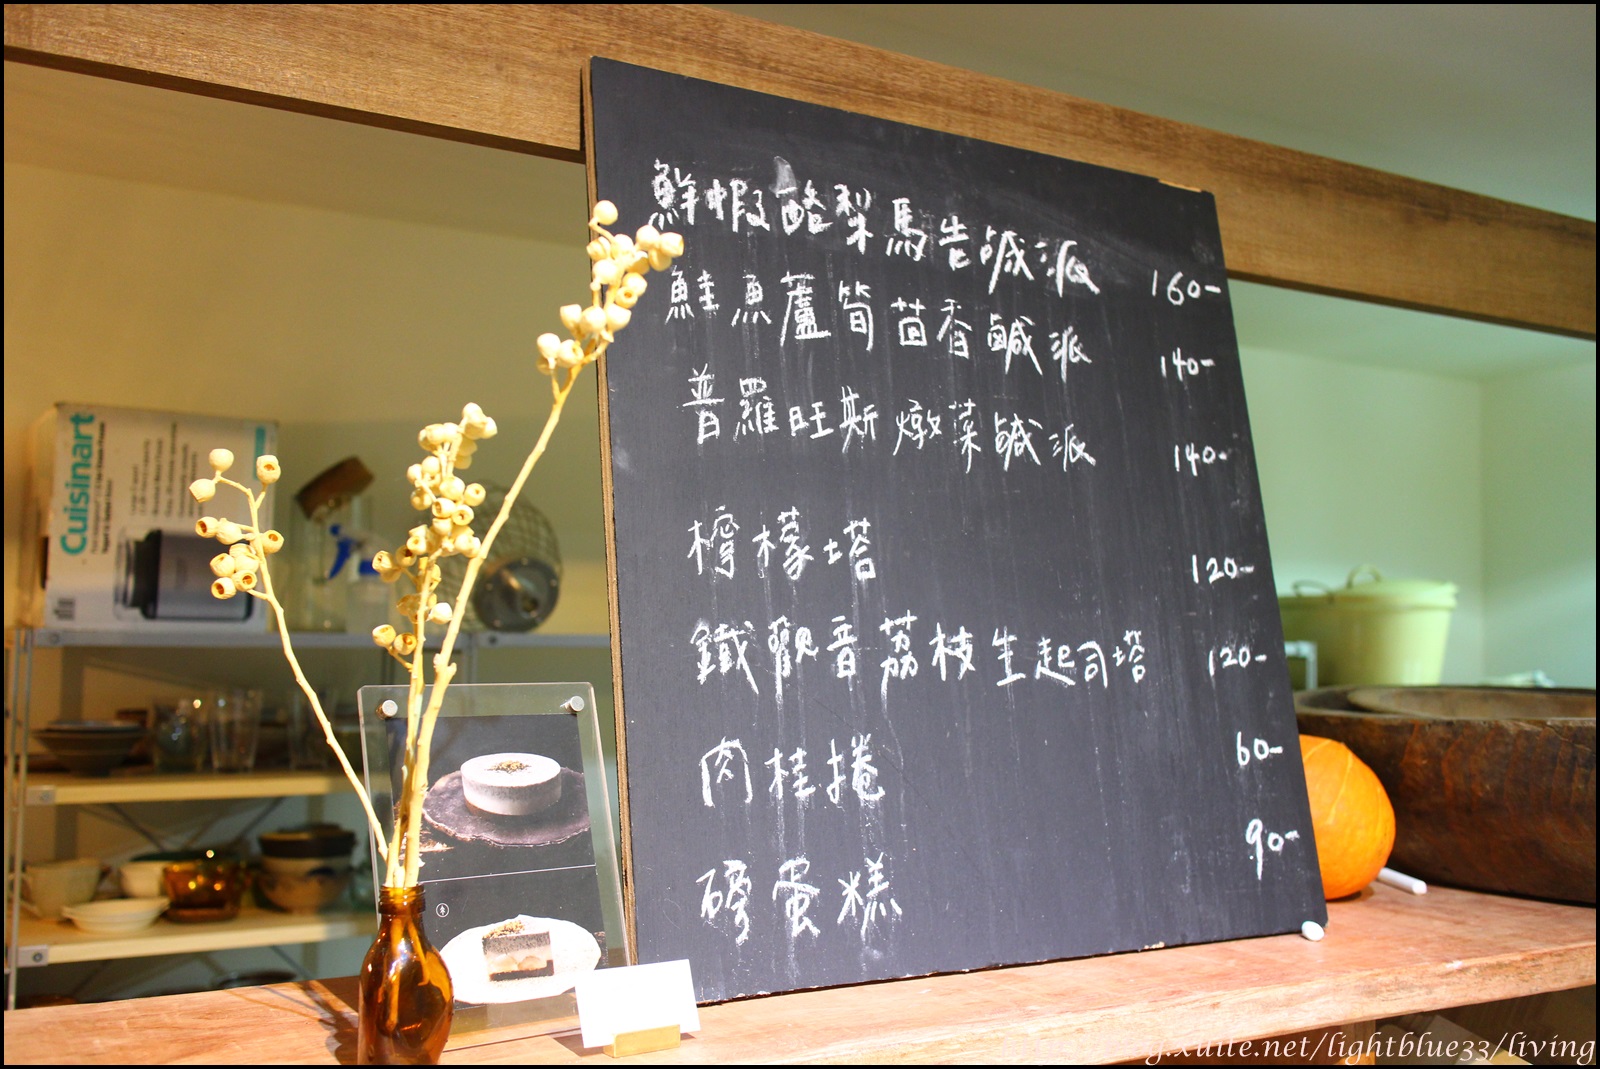 鮮蝦酪梨馬告鹹派 160-
鮭魚蘆筍茴香鹹派 140-
普羅旺斯燉菜鹹派 140-
檸檬塔 120-
鐵觀音荔枝生起司塔 120-
肉桂捲 60-
磅蛋糕 90-
Cuisinart
.xuite.net/lightblue33/living